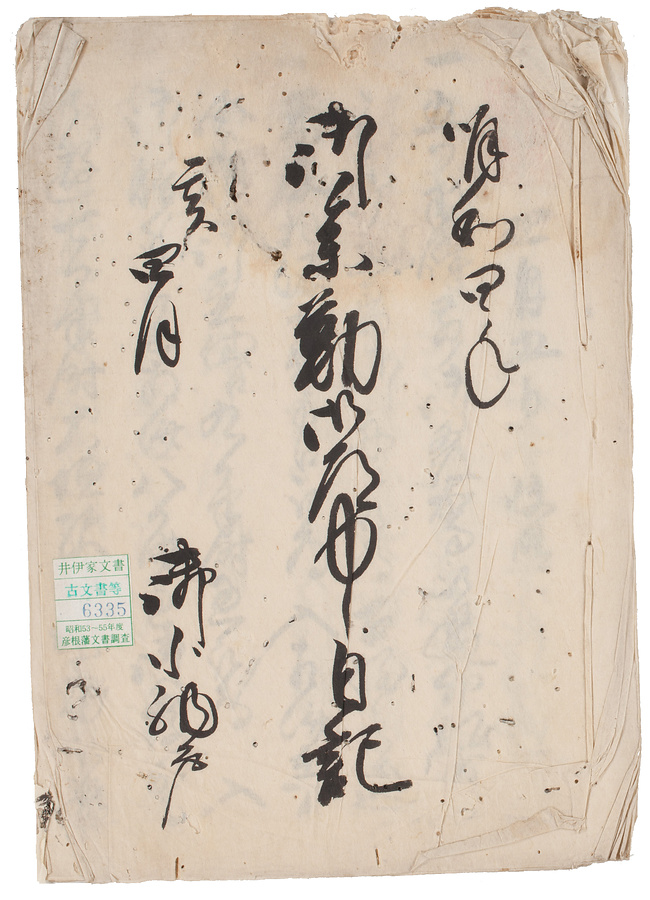 明和四年
御参勤御道中日記
亥四月
御小納戸
井伊家文書
古文書等
6335
昭和53〜55年度
彦根藩文書調査